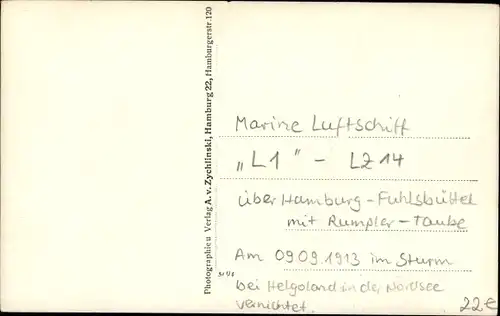 Photographie u Verlag A. v. Zychlinski, Hamburg 22, Hamburgerstr. 120
Marine Luftschiff
„L1" - LZ14
über Hamburg-Fuhlsbüttel
mit Rumpler-Taube
Am 09.09.1913 im Sturm
bei Helgoland in der Nordsee
vernichtet.
22€